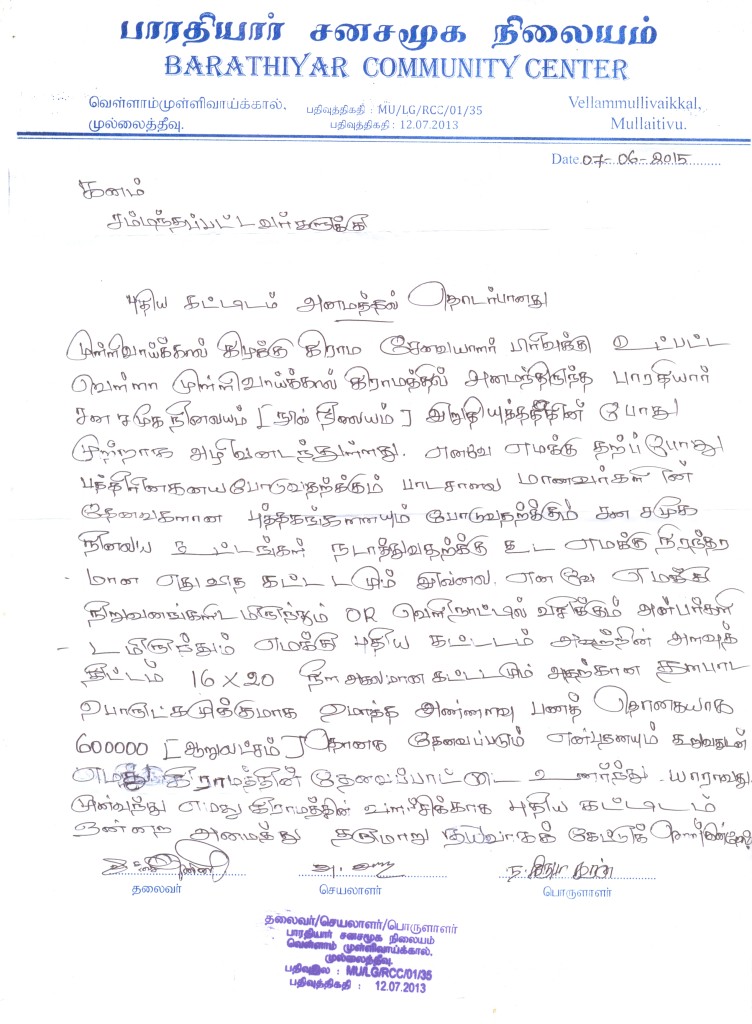 பாரதியார் சனசமூக நிலையம்
BARATHIYAR COMMUNITY CENTER
வெள்ளாம்முள்ளிவாய்க்கால்,
முல்லைத்தீவு.
பதிவுத்திகதி : MU/LG/RCC/01/35
பதிவுத்திகதி : 12.07.2013
Vellammullivaikkal,
Mullaitivu.
Date. 07-06-2015
கனம்
சம்மந்தப்பட்டவர்களுக்கு
புதிய கட்டிடம் அமைத்தல் தொடர்பானது
முள்ளிவாய்க்கால் கிழக்கு கிராம சேவையாளர் பிரிவுக்கு உட்பட்ட
வெள்ளா முள்ளிவாய்க்கால் கிராமத்தில் அமைந்திருந்த பாரதியார்
சன சமூக நிலையம் [ ] இறுதியுத்தத்தின் போது
முற்றாக அழிவடைந்துள்ளது. எனவே எமக்கு தற்போது
பத்திரிகையை போடுவதற்க்கும் பாடசாலை மாணவர்களின்
தேவைகளான புத்தகங்களையும் போடுவதற்கும் சன சமூக
நிலைய கூட்டங்கள் நடாத்துவதற்க்கு கூட எமக்கு நிரந்தர
மான எதுவித கட்டடமும் இல்லை. எனவே எமக்கு
நிறுவனங்களிடமிருந்தும் OR வெளிநாட்டில் வசிக்கும் அன்பர்களி
டமிருந்தும் எமக்கு புதிய கட்டடம் அதற்றின் அளவுத்
திட்டம் 16 X 20 நீள அகலமான கட்டடமும் அதற்கான தளபாட
பொருட்களுக்குமாக மொத்த அண்ணளவு பணத் தொகையாக
600000 [ ஆறுலட்சம் ] தொகை தேவைப்படும் என்பதனையும் கூறுவதுடன்
எமது கிராமத்தின் தேவைப்பாட்டை உணர்ந்து யாராவது
முன்வந்து எமது கிராமத்தின் வளர்சிக்காக புதிய கட்டிடம்
ஒன்றை அமைத்து தருமாறு தயவாகக் கேட்டுக் கொள்கின்றேன்
தலைவர் செயலாளர் பொருளாளர்
தலைவர்/செயலாளர்/பொருளாளர்
பாரதியார் சனசமூக நிலையம்
வெள்ளாம் முள்ளிவாய்க்கால்,
முல்லைத்தீவு.
பதிவுஇல : MU/LG/RCC/01/35
பதிவுத்திகதி : 12.07.2013